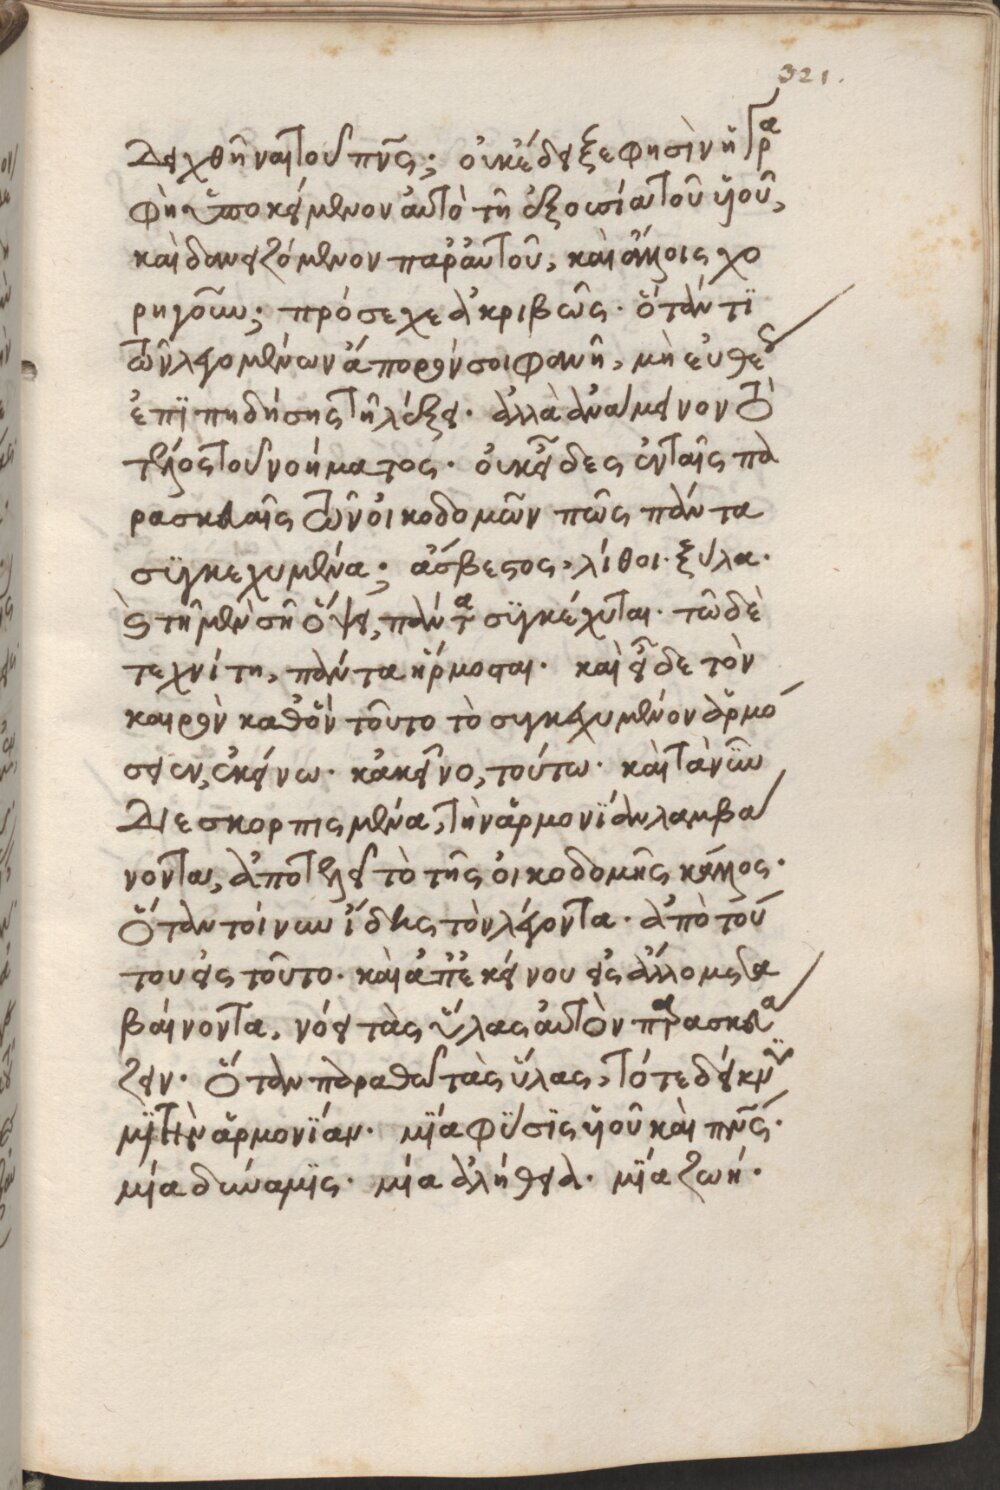 321.
δειχθῆναι τοῦ πνς; οὐκ ἔδειξε φησὶν ἡ γρα
φὴ ὑποκείμενον αὐτὸ τῆ ἐξουσία τοῦ υἱοῦ,
καὶ δανειζόμενον παρ' αὐτοῦ, καὶ ἄλλοις χο
ρηγοῦν; πρόσεχε ἀκριβῶς. ὅτάν τϊ
τῶν λεγομένων ἄπορόν σοι φανῆ, μὴ εὐθέως
ἐπϊπηδήσης τῆ λέξει. ἀλλὰ ἀνάμεινον τὸ
τέλος τοῦ νοήματος. οὐκ εἶδες ἐν ταῖς πα
ρασκευαῖς τῶν οἰκοδομῶν πῶς πάντα
συγκεχυμένα; ἄσβεστος, λίθοι. ξύλα.
Στῆ μὲν σῆ ὄψει, πάντα συγκέχυται. τῶ δὲ
τεχνίτη, πάντα ἥρμοσται. καὶ εἶδε τὸν
καιρὸν καθ' ὃν τοῦτο τὸ συγκείμενον ἁρμό
σειεν, ἐκείνω. κἀκεῖνο, τούτω. καὶ τὰ νῦν
διεσκορπισμένα, τὴν ἁρμονΐαν λαμβά
νοντα, ἀποτελεῖ τὸ τῆς οἰκοδομῆς κάλλος.
Ὅταν τοίνυν ἴδης τὸν λέγοντα. ἀπὸ τού
του εἰς τοῦτο. καὶ ἀπ' ἐκείνου εἰς ἄλλο μετα
βαίνοντα, νόει τὰς ὕλας αὐτὸν παρασκευά
ζειν. Ὅταν παραθῶ τὰς ὕλας, τότε δείκνυ
μϊ τὴν ἁρμονΐαν. μΐα φύσϊς υἱοῦ καὶ πνς.
μία δύναμϊς. μία ἀλήθεια. μΐα ζωή.